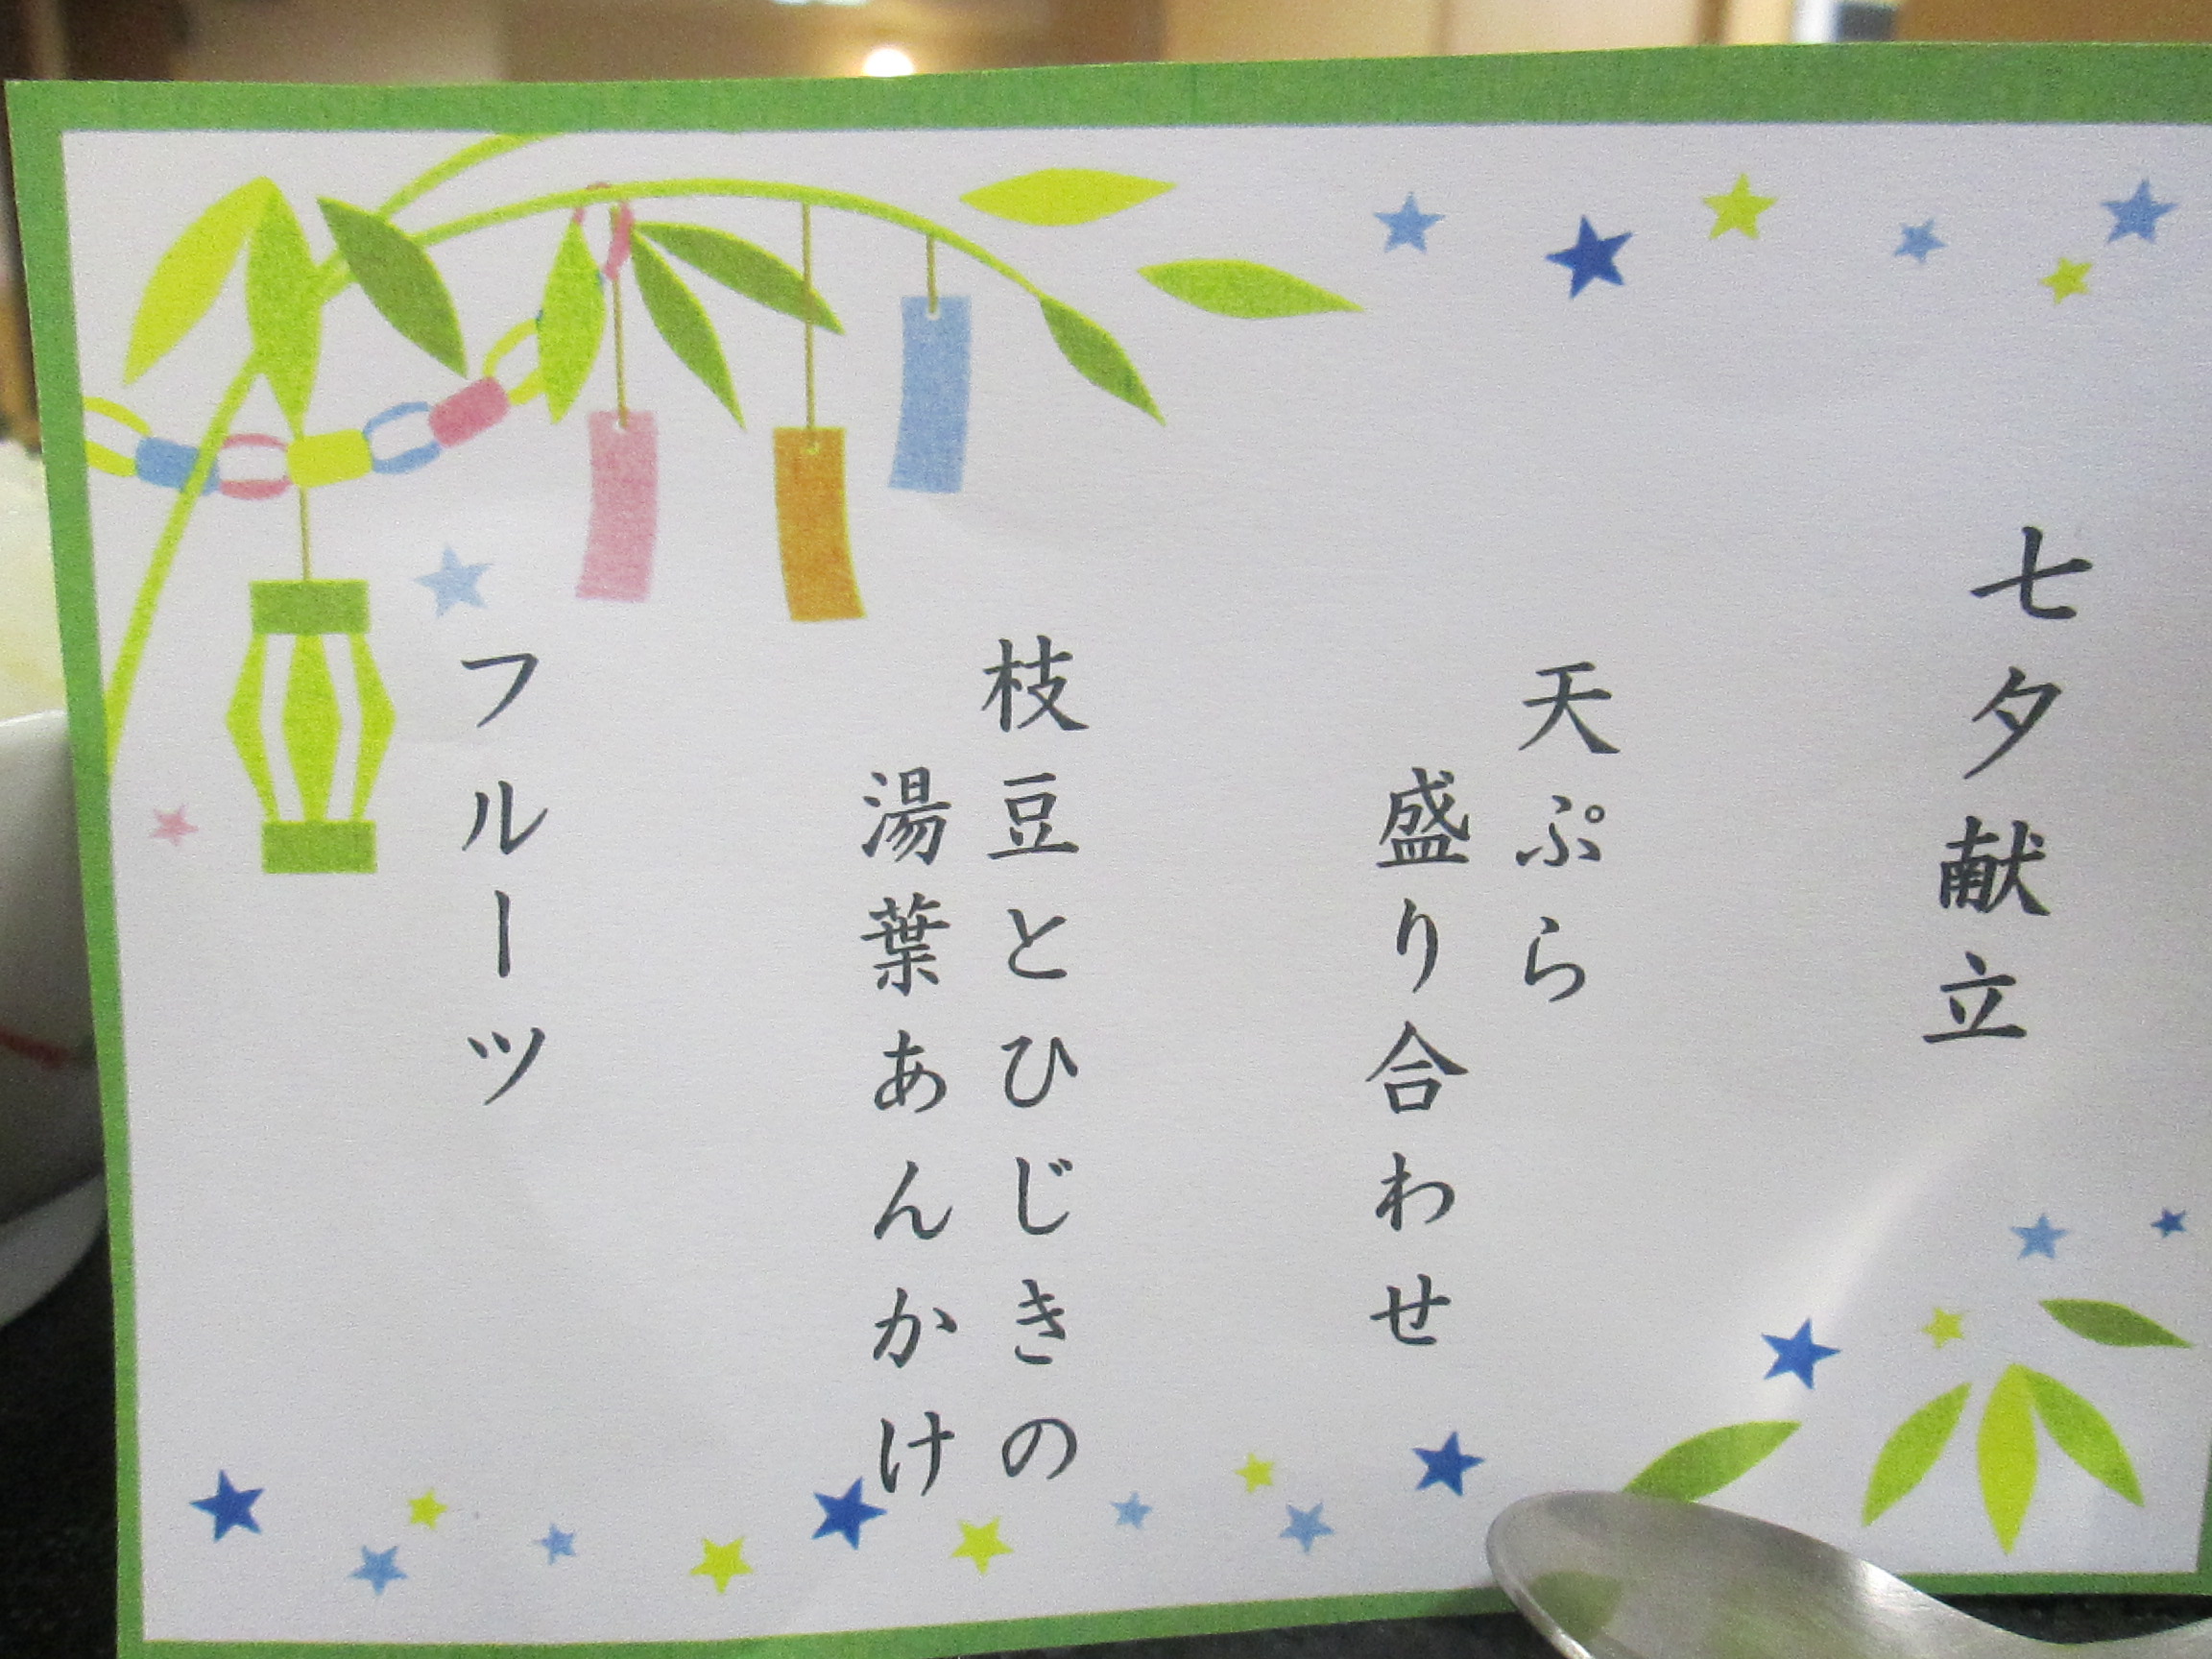 七夕献立
天ぷら
盛り合わせ
枝豆とひじきの
湯葉あんかけ
フルーツ